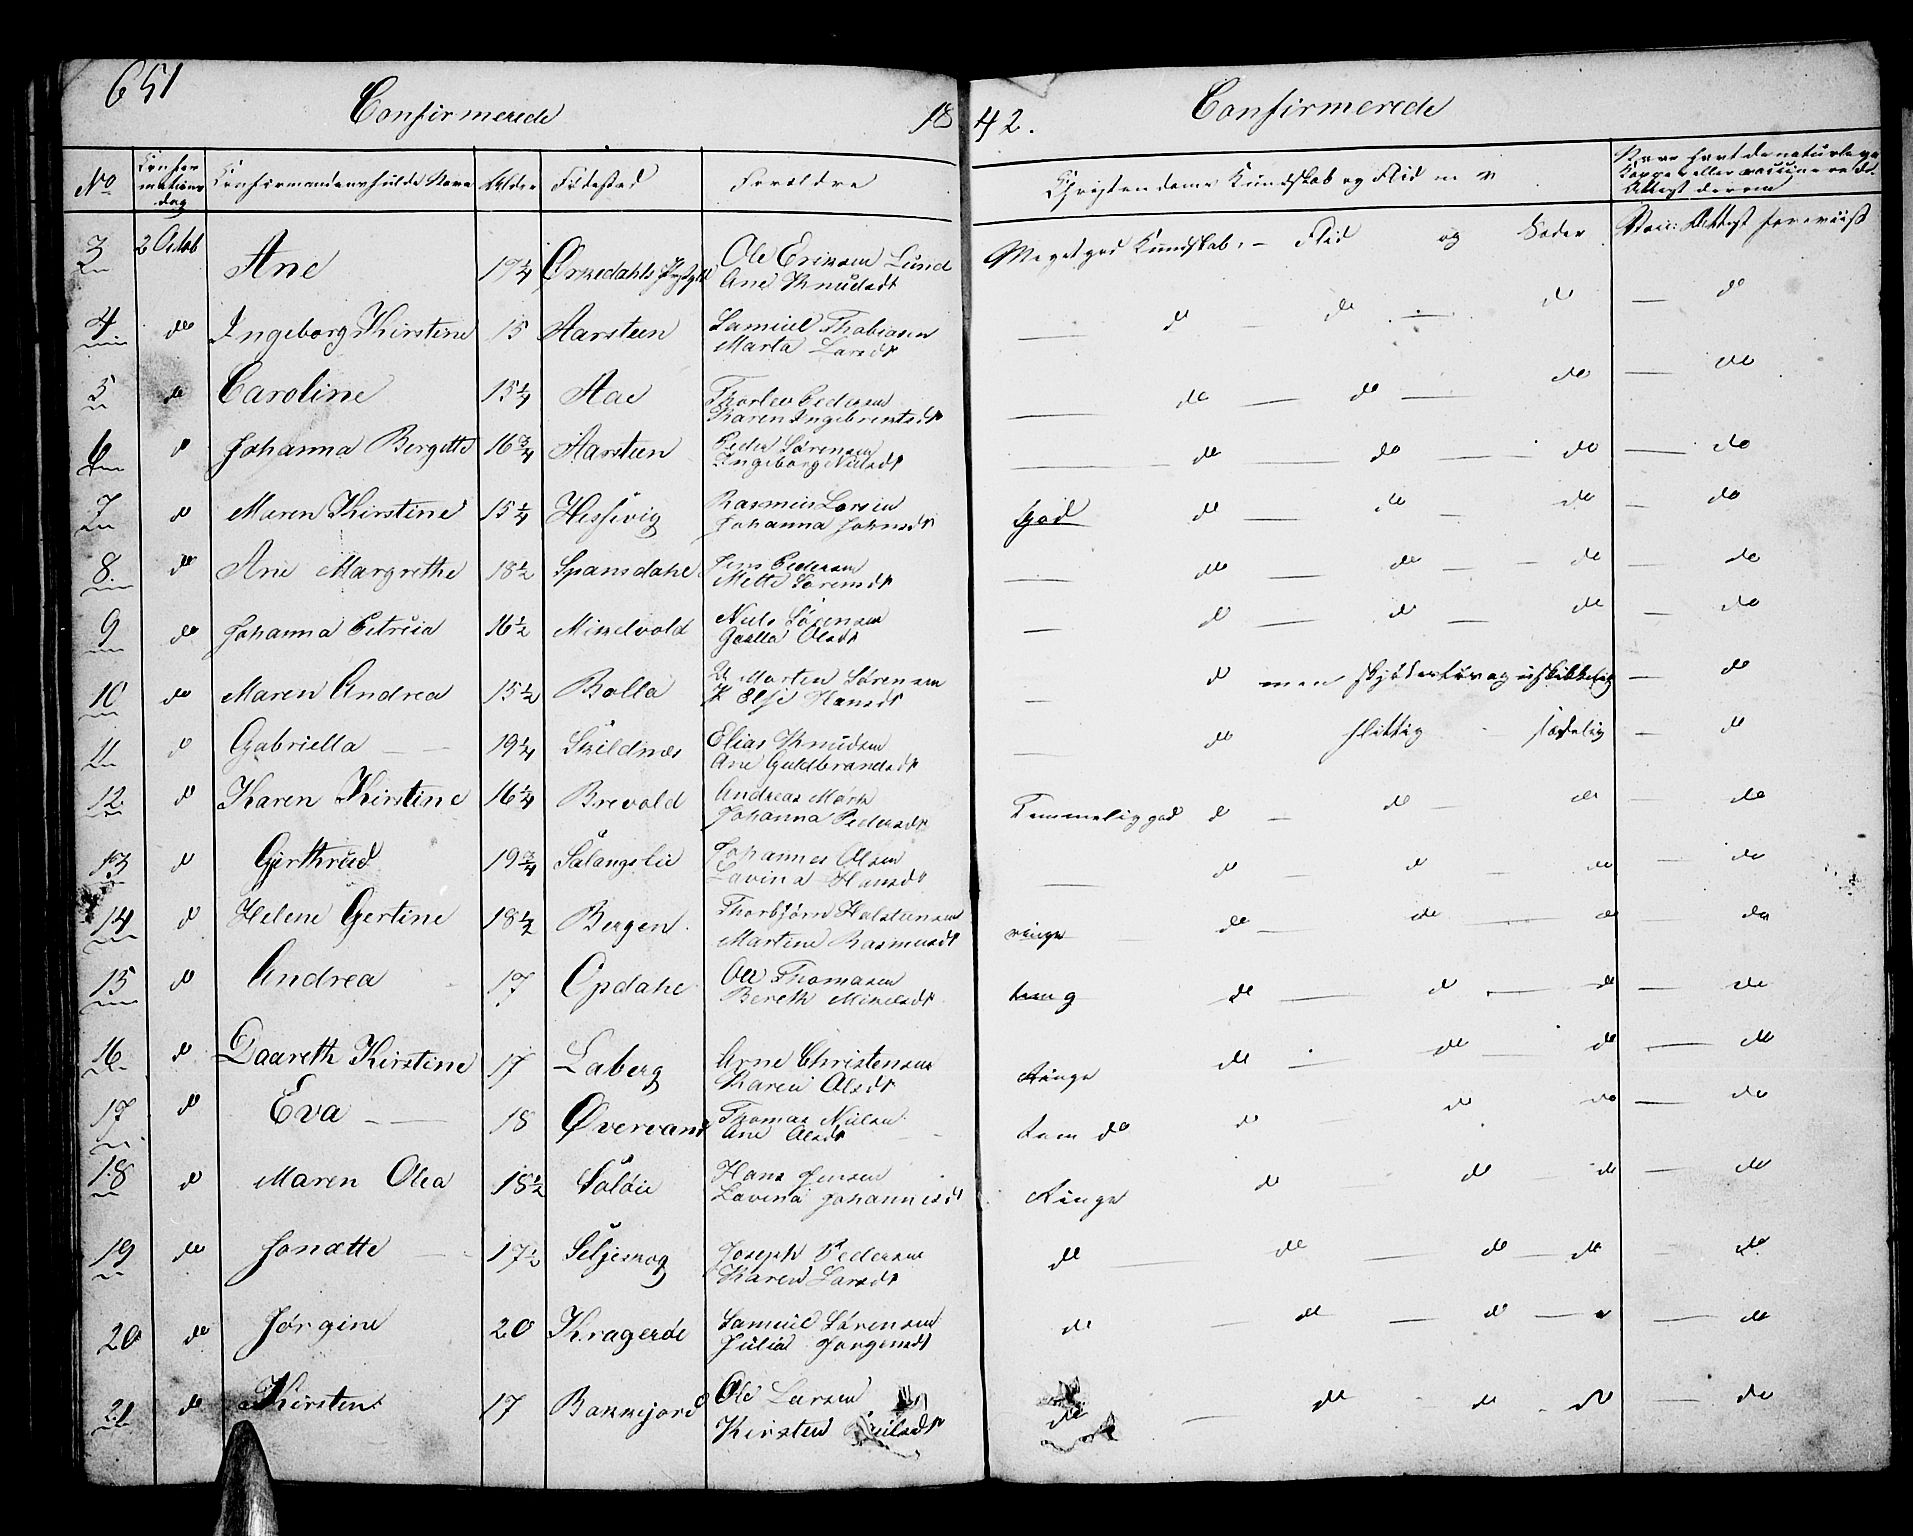 651
Confirmerede 18 42. Confirmerede
No Confirmations dag Confirmandens fulde Navn Alder Fødested Forældre Christendoms Kundskab og Flid m v Have havt de naturlege Kopper eller vaccinerede Attest derom
3 2 Octob Ane 17 1/4 Ørkedahls Ole Eriksen Lund Meget god Kundskab - Flid og Sæder Vacc: Attest foreviist
Ane Knudsdt
4 do Ingeborg Kirstine 15 Aarsteen Samuel Thobiasen — do — do — do — do
Marta Larsdt
5 do Caroline 15 1/4 Aae Thorlev Pedersen — do — do — do — do
Karen Ingebrentsdt
6 do Johanna Bergitte 16 3/4 Aarsteen Peder Sørensen — do — do — do — do
Ingeborg Nilsdt
7 do Maren Kirstine 15 1/4 Hessvig Rasmus Larsen God do — do — do — do
Johanna Johnsdt
8 do Ane Margrethe 18 1/2 Spansdahl Jens Pedersen — do — do — do — do
Mette Sørensdt
9 do Johanna Petrica 16 1/2 Mikelvold Niels Sørensen — do — do — do — do
Olsdt
10 do Maren Andrea 15 1/2 Bolla Morten Sørensen — do men og uskikkelig — do
Else Hansdt
11 do Gabriella — 19 1/4 Skildnæs Elias Knudsen — do flittig - sædelig — do
Ane Guldbrandsdt
12 do Karen Kirstine 16 1/4 Brevold Andreas Mark Temmelig god do — do — do — do
Johanna Pedersdt
13 do Gjerthrud 19 3/4 Salangslie Johannes Olsen — do do do — do
Lavina Hansdt
14 do Helene Gertine 18 1/2 Bergen Thorbjørn Halstensen ringe — do — do — do — do
Martine Rasmusdt
15 do Andrea 17 Opdahl Ole Thomasen do — do — do — do
Bereth Mikelsdt
16 do Daareth Kirstine 17 Laberg Arne Christensen Ringe do — do — do — do
Karen Olsdt
17 do Eva — 18 Øvervand Thomas Nielsen do do do do — do
Ane Olsdt
18 do Maren Olea 18 1/2 Soløie Hans Jensen Ringe do do do — do
Lavina Johannesdt
19 do Jonætte 17 1/2 Seljeskog Joseph Pedersen do — do — do — do — do
Karen Larsdt
20 do Jørgine 20 Kragerøe Samuel Sørensen do — do — do — do — do
Julia Jørgensdt
21 do Kirsten 17 Bakkejord Ole Larsen do — do — do - do — do
Kirsten Nilsdt